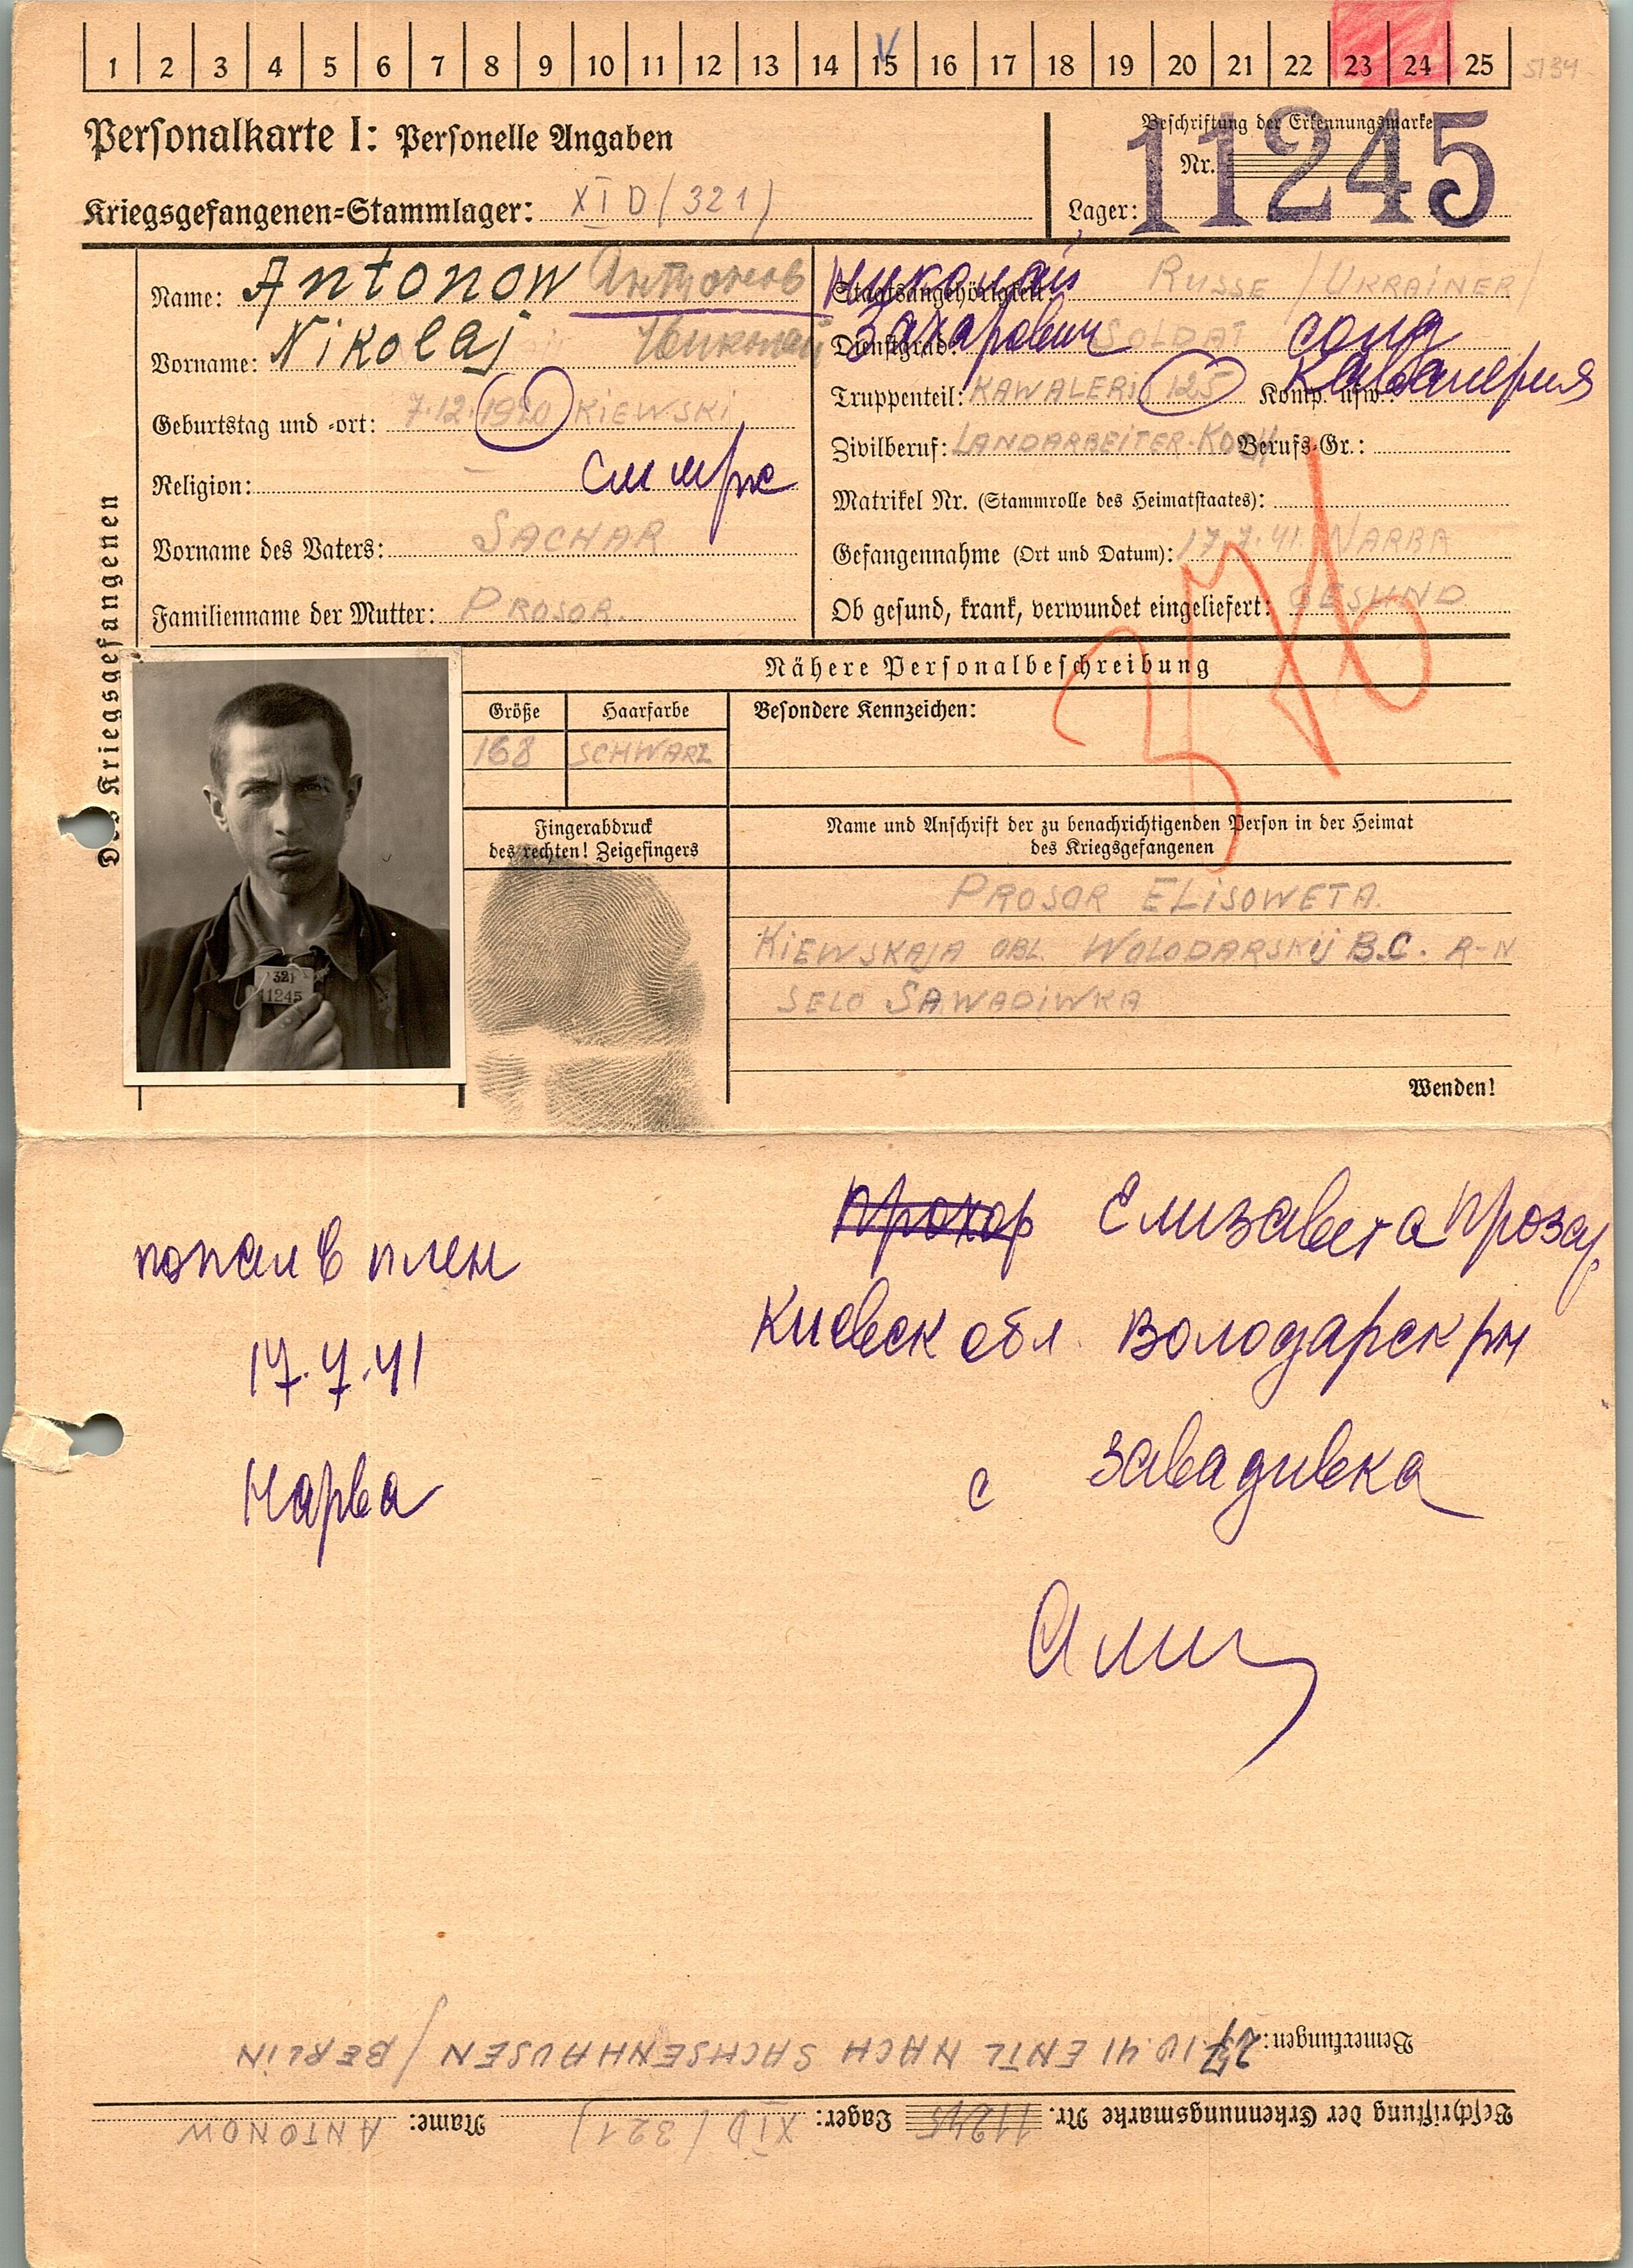 1 2 3 4 5 6 7 8 9 10 11 12 13 14 15 16 17 18 19 20 21 22 23 24 25
5134
Personalkarte I: Personelle Angaben
Beschriftung der Erkennungsmarke
Nr. 11245
Kriegsgefangenen=Stammlager: XI D (321)
Lager:
Des Kriegsgefangenen
Name: Antonow Антонов
Николай
Staatsangehörigkeit: RUSSE /UKRAINER/
Vorname: Nikolaj Николай
Захарович
Dienstgrad: SOLDAT солд
Geburtstag und =ort: 7.12.1920 KIEWSKI
Truppenteil: KAWALERI 125 Komp. usw.: Кавалерия
Zivilberuf: LANDARBEITER-KOCH Berufs-Gr.:
Religion: –
Matrikel Nr. (Stammrolle des Heimatstaates):
Vorname des Vaters: SACHAR
Gefangennahme (Ort und Datum): 17.7.41. NARBA
Familienname der Mutter: PROSOR.
Ob gesund, krank, verwundet eingeliefert: GESUND
Nähere Personalbeschreibung
Größe Haarfarbe Besondere Kennzeichen:
168 SCHWARZ
Fingerabdruck
des rechten! Zeigefingers
Name und Anschrift der zu benachrichtigenden Person in der Heimat
des Kriegsgefangenen
PROSOR ELISOWETA.
KIEWSKAJA OBL. WOLODARSKIJ B.C. R-N
SELO SAWADIWKA
321
11245
Wenden!
Прохор Елизавета Прозар
попал в плен
Киевск обл. Володарск рн
17.7.41
с Завадивка
Нарва
Bemerkungen: 23.10.41 ENTL NACH SACHSENHAUSEN / BERLIN
Beschriftung der Erkennungsmarke Nr. 11245 Lager: XI D (321) Name: ANTONOW